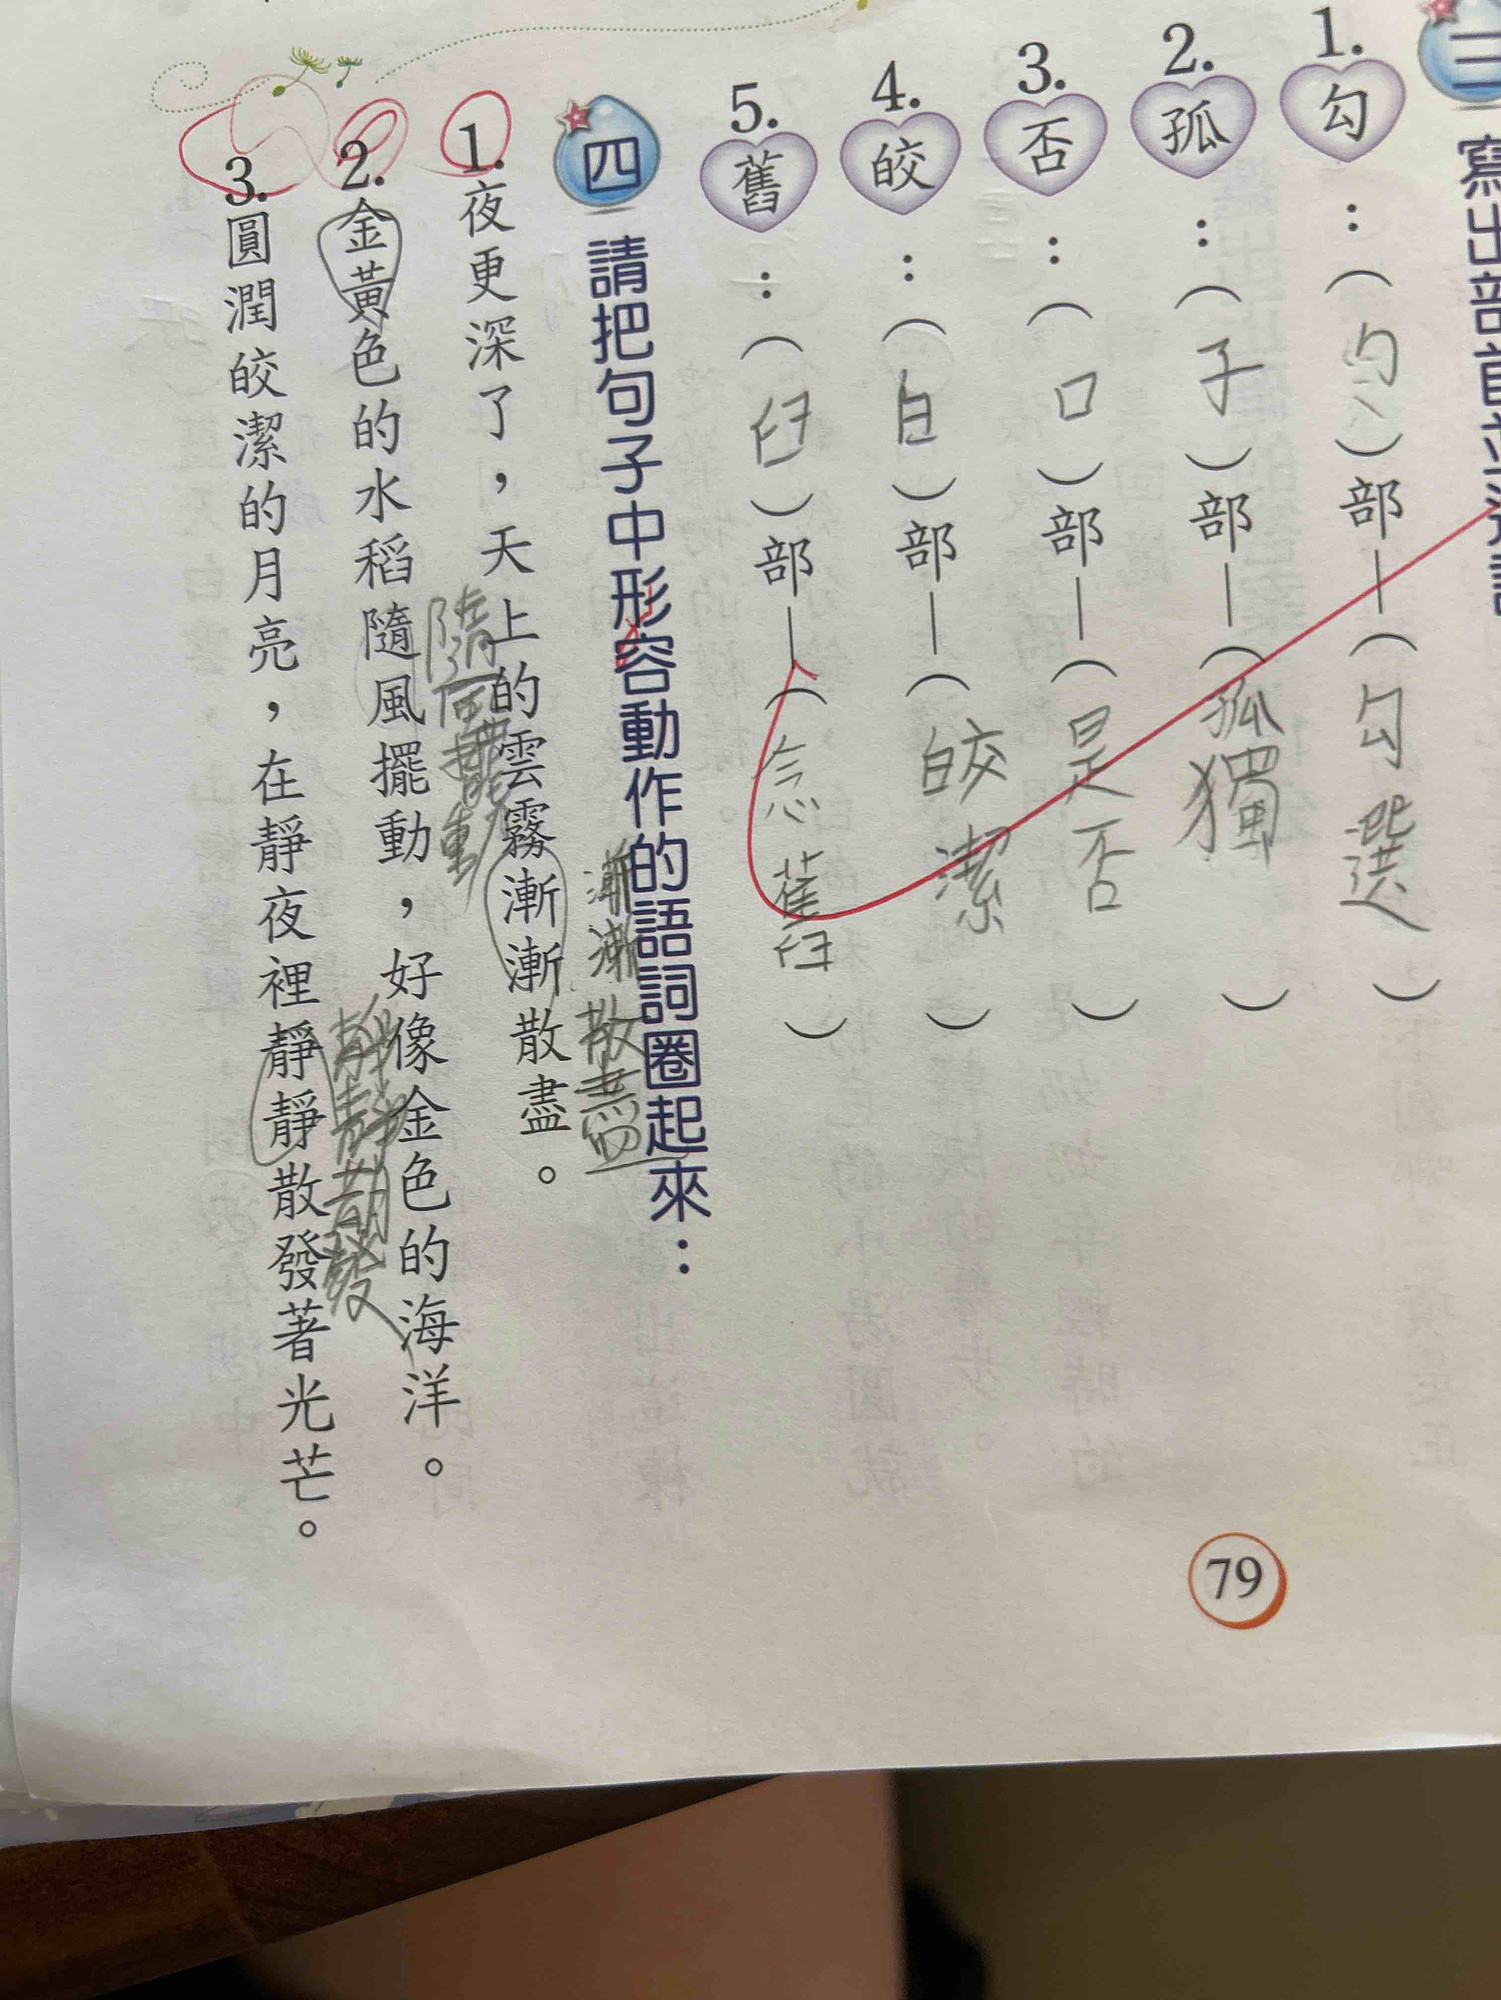 三 寫出部首並造詞
1.勾：（勹）部—（勾選）
2.孤：（子）部—（孤獨）
3.否：（口）部—（是否）
4.皎：（白）部—（皎潔）
5.舊：（臼）部—（念舊）
四 請把句子中形容動作的語詞圈起來：
漸漸散盡
1.夜更深了，天上的雲霧漸漸散盡。
隨風擺動
2.金黃色的水稻隨風擺動，好像金色的海洋。
靜靜散發
3.圓潤皎潔的月亮，在靜夜裡靜靜散發著光芒。
79